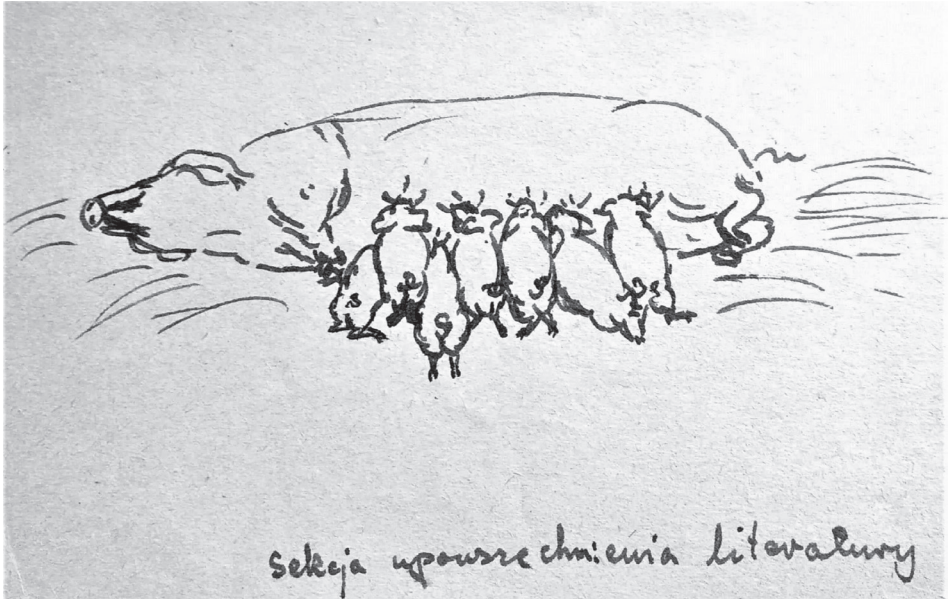 sekcja upowszechnienia literatury